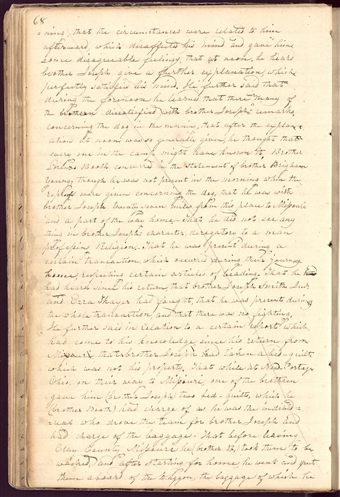 68
ning, that the circumstances were related to him
afterward, which disaffected his mind and gave him
some disagreeable feelings, that at noon, he heard
brother Joseph give a further explanation, which
perfectly satisfied his mind. He further said that
during the forenoon he learned that there many of
the brethren dissatisfied with brother Joseph's remarks
concerning the dog in the morning, that after the explan
ation at noon was so generally given, he thought that
every one in the camp might have known it. Brother
Lorenzo Booth concurred in the statement of brother Brigham
Young, though he was not present in the morning when the
were given concerning the dog, that he was with
brother Joseph twenty seven miles from this place to Missouri
and a part of the way home. That he did not see any
thing in brother Joseph's character derogatory to a man
professing Religion. That he was present during a
certain transaction which occurred during their journey
home, respecting certain articles of loading. That he
has heard since his return, that brother Joseph Smith Junr
and Ezra Thayer had fought, that he was present during
the whole transaction, and that there was no fighting.
He further said in relation to a certain report which
had come to his knowledge since his return from
Missouri that brother Joseph had taken a bed-quilt
which was not his property, That while at New Portage
Ohio, on their way to Missouri, one of the brethren
gave him (brother Joseph) two bed-quilts, which he
(brother Booth) had charge of as he was the individ-
ual who drove the team for brother Joseph and
had charge of the baggage. That before leaving
Clay County, Missouri he (brother B.) took them to be
washed, and after starting for home he went and put
them aboard of the Waggon, the baggage of which he